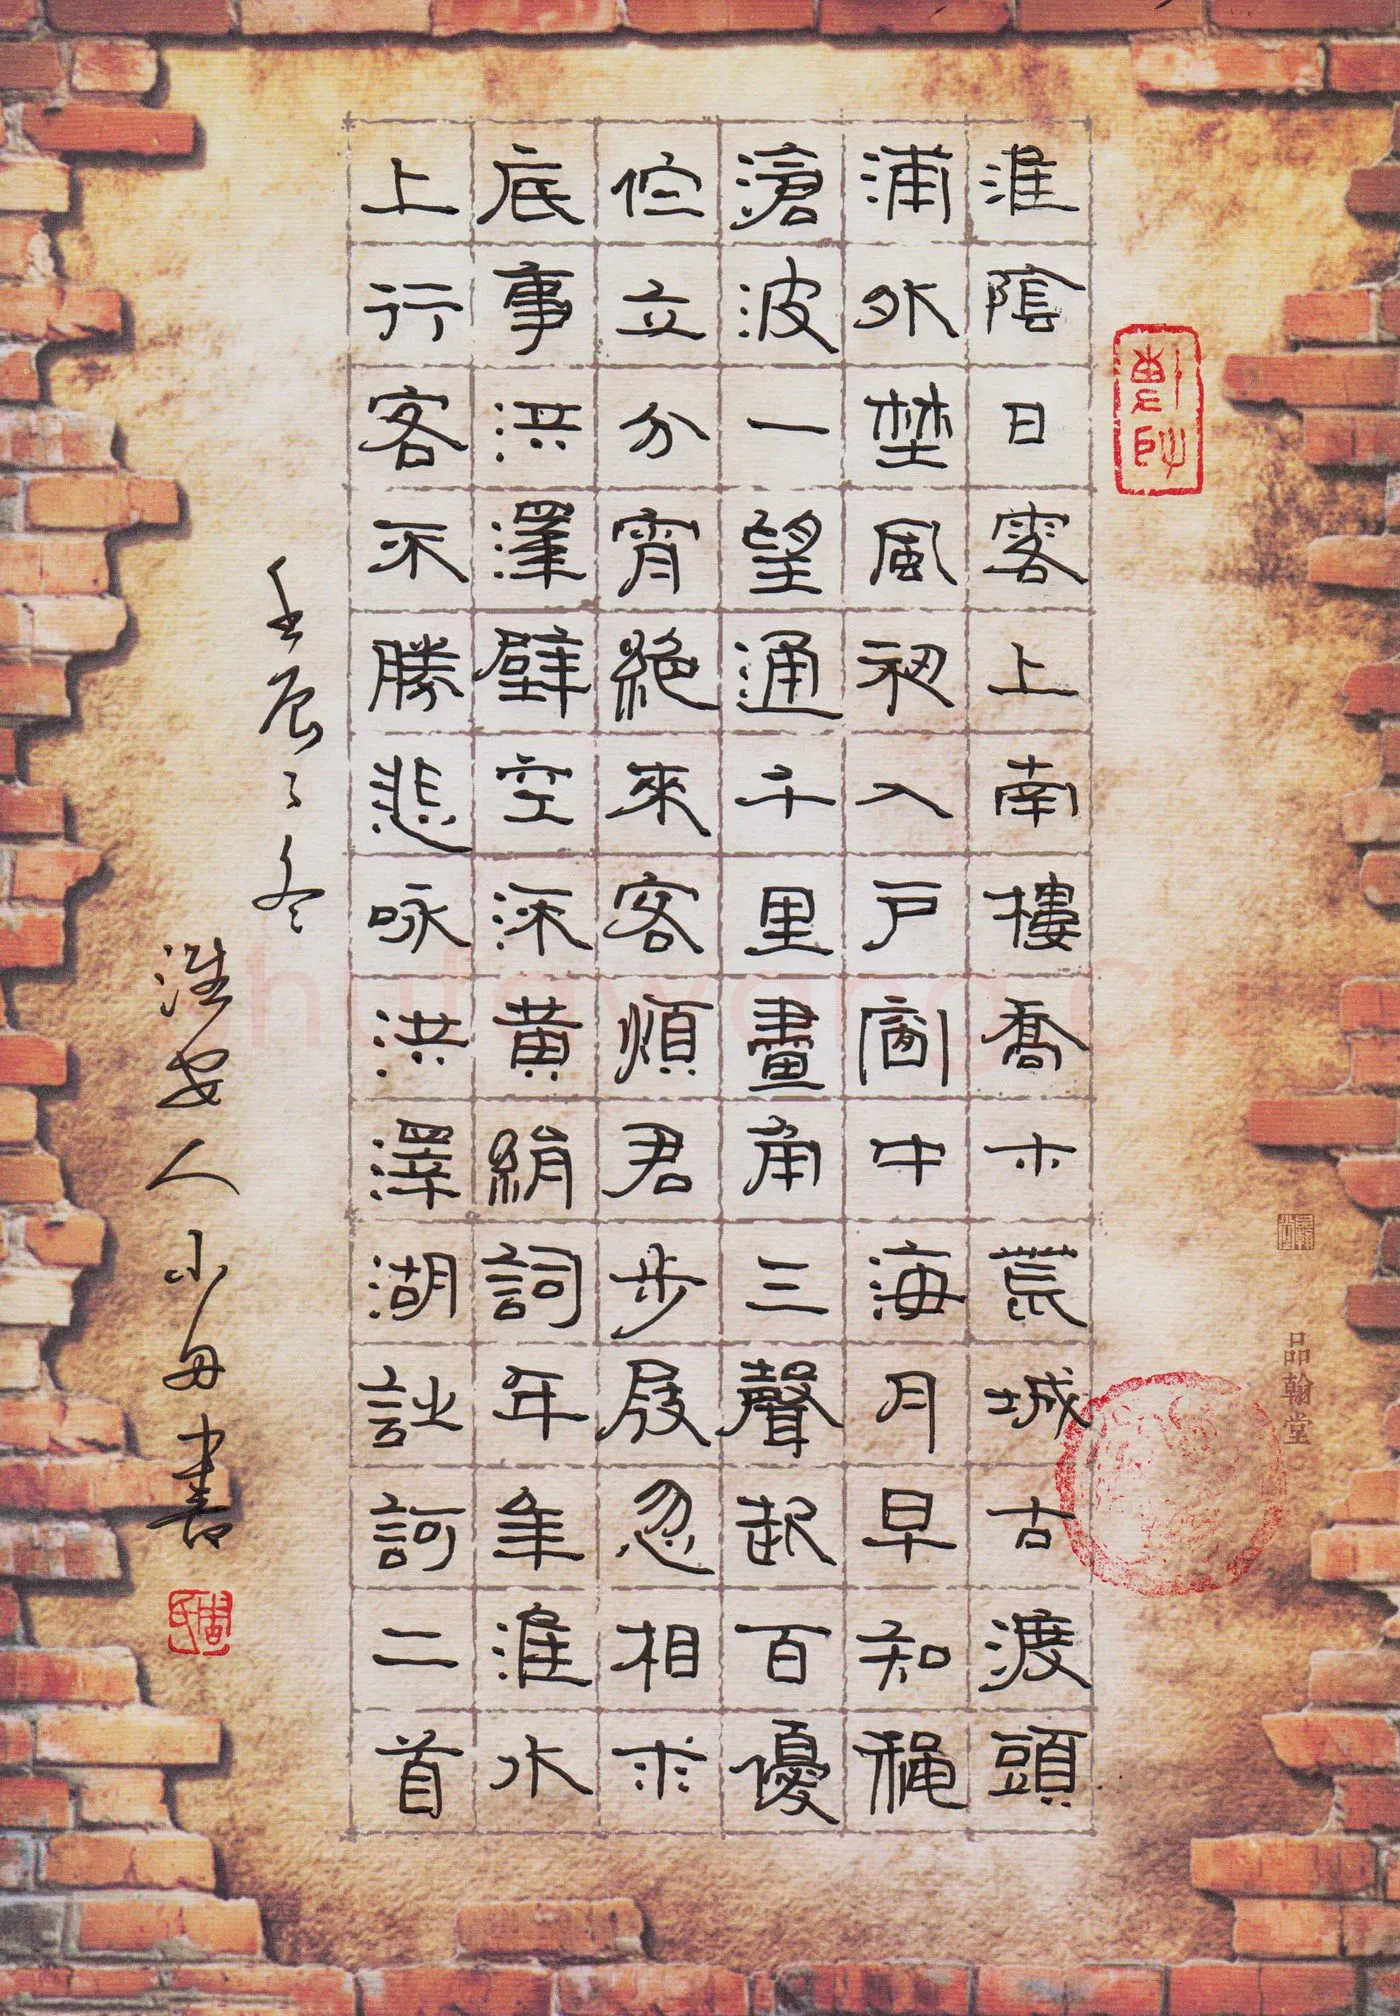 淮陰日客上南樓喬木荒城古渡頭
浦外埜風初入戶窗中海月早知穐
滄波一望通千里畫角三聲起百優
伫立分宵絕來客煩君步屐忽相求
底事洪澤壁空深黃絹詞年年淮水
上行客不勝悲咏洪澤湖詩詞二首
壬辰之冬
淮安人小毋書
品翰堂